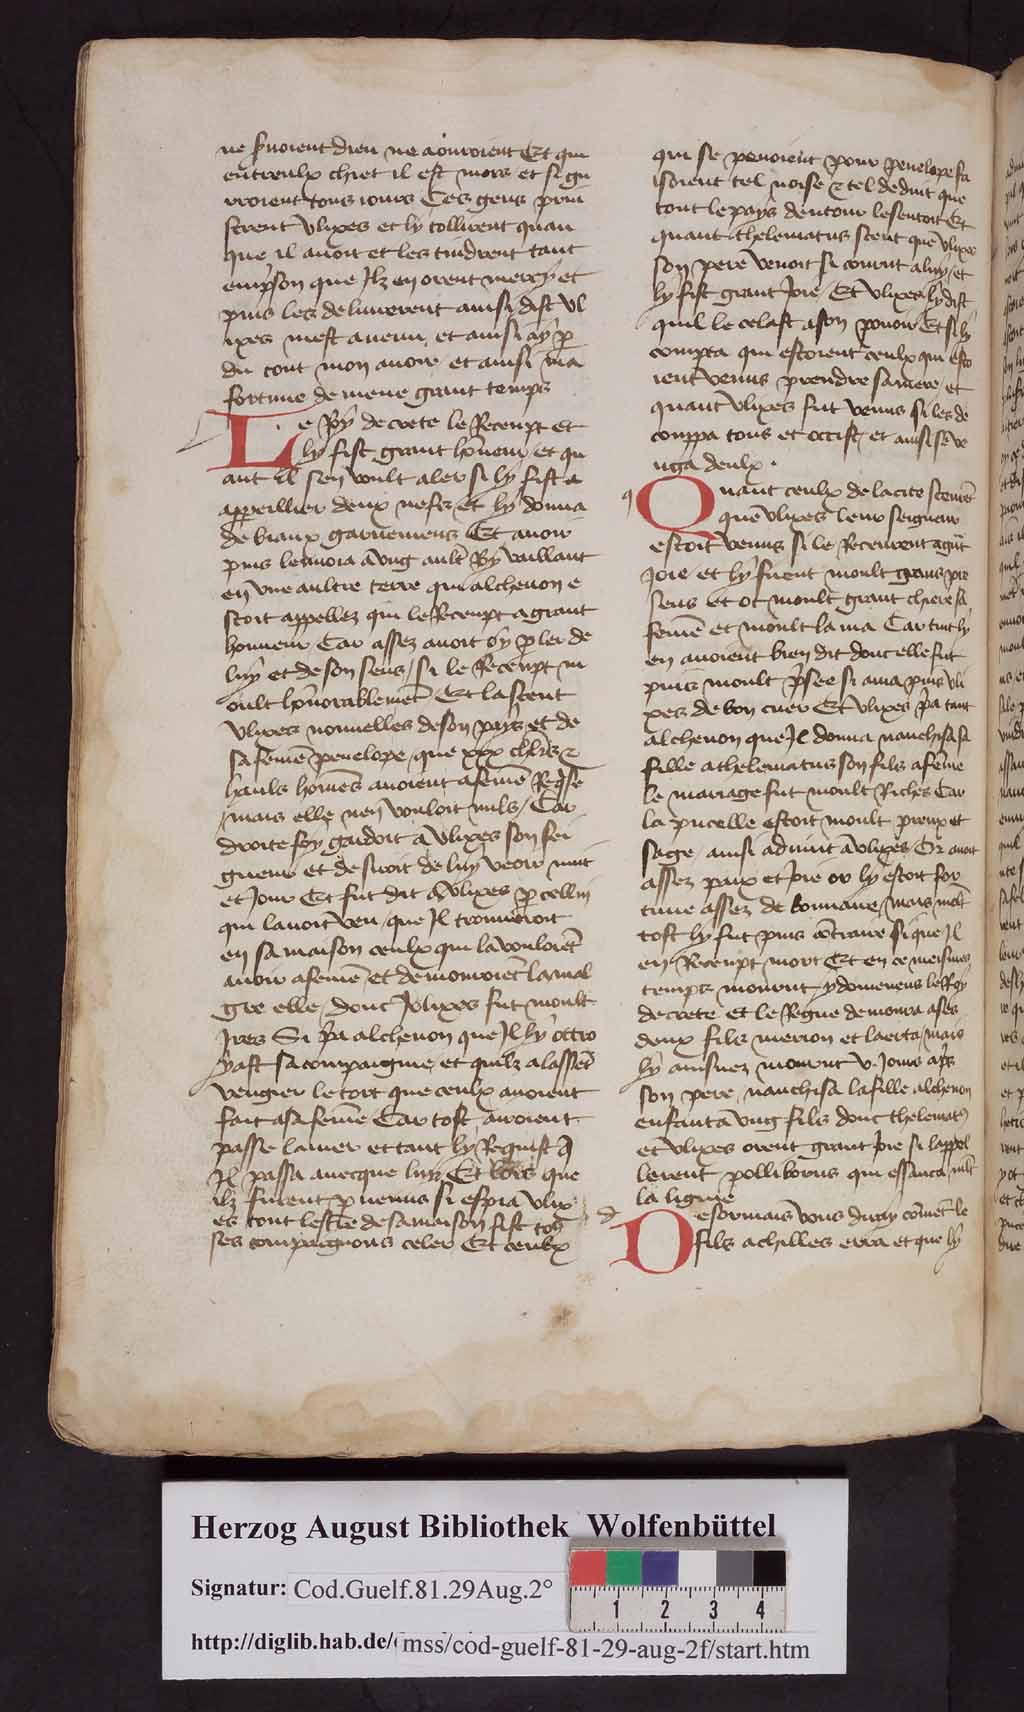 ne s̾uoient dieu ne aouroient Et qui
entreulx chiet il est mors et si gu
erroient tous iours Ces gens prin
sirent Vlixes et ly tollirent quan
que il auoit et les tindrent tant
emp̾son que Jlz en orent mercy et
puis les deliurerent ainsi dist vl
ixes mest auenu et ainsi ay ꝑ
du tout mon auoir et ainsi ma
fortune demene grant temps
Le Roy de crete le Receupt et
ly fist grant hōneur et qu
ant il sen voult aler si ly fist a
appeillier deux nefz et ly donna
de biaux garnemens Et auoir
puis lenuoia a vng aultr̄ Roy vaillant
en vne aultre terre qui alchenon e
stoit appellez qui le Receupt a grant
honneur Car assez auoit oy ꝑler de
luy et de son sens / si le Receupt m
oult hōnorablemēt Et la sceut
vlixes nouuelles de son pays et de
sa femē penelope que xxx chl̄rs et
haulx homēs auoient a femē Reqⁱse
/ mais elle nen vouloit nuls / Car
droite foy gardoit a vlixes son sei
gneur et desiroit de luy veoir nuit
et Jour Et fut dit a vlixes ꝑ cellui
qui lauoit veu que Jl trouueroit
en sa maison ceulx qui la vouloiēt
auoir a femē et demouroiēt la mal
gre elle / donc vlixes fut moult
Jrez Si p̾a alchenon que Jl ly ottro
yast sa compaignie et quilz alassēt
vengier le tort que ceulx auoient
fait a sa femē Car tost auroient
passe la mer et tant ly Requist q̄
Jl passa auecque luy Et lors que
ilz furent ꝑuenus si espia vlix
es tout lestre de sa maison fist to⁹
ses compaignons celer Et ceulx
qui se penoient pour penelope fa
isoient tel noise et tel deduit que
tout le pays dentour le sentoit Et
quant thelematus sceut que vlixes
son pere venoit si courut a luy / et
ly fist grant Joie / Et vlixes ly dist
quil le celast a son pouoir Et si ly
compta qui estoient ceulx qui esto
ient venus prendre sa mere et
quant vlixes fut venus si les de
couppa tous et occist / et ainsi se ve
nga deulx .
q
Quant ceulx de la cite sceurēt
que vlixes leur seigneur
estoit venus si le Receurent a gr̄t
Joie et ly firent moult grans pre
sens et ot moult grant chiere sa
femē et moult lama Car tuit ly
en auoient bien dit donc elle fut
puis moult p̾see si ama puis vli
xes de bon cuer Et vlixes p̾a tant
alchenon que Jl donna nauchisa sa
fille a thelematus son fils a femē
le mariage fut moult Riches Car
la pucelle estoit moult preux et
sage / ainsi aduint a vlixes Or auoit
assez paix et Joie or ly estoit for
tune assez de bonnaire / mais ml̄t
tost ly fut puis cōtraire si que Jl
en Receupt mort Et en ce meismes
temps mourut ydomeneus le Roy
de crete et le Regne demoura a ses
deux fils merion et laerta / mais
ly ainsnez mourut v. Jours aps̄
son pere / nauchisa la fille alchenon
enfanta vng fils donc thelemat⁹
et vlixes orent grant Joie si lappel
lerent polliborus qui essauca ml̄t
la lignie
d
Desormais vous diray cōmēt le
fils achilles erra et que ly
Herzog August Bibliothek Wolfenbüttel
Signatur: Cod.Guelf.81.29Aug.2°
1 2 3 4
http://diglib.hab.de/mss/cod-guelf-81-29-aug-2f/start.htm